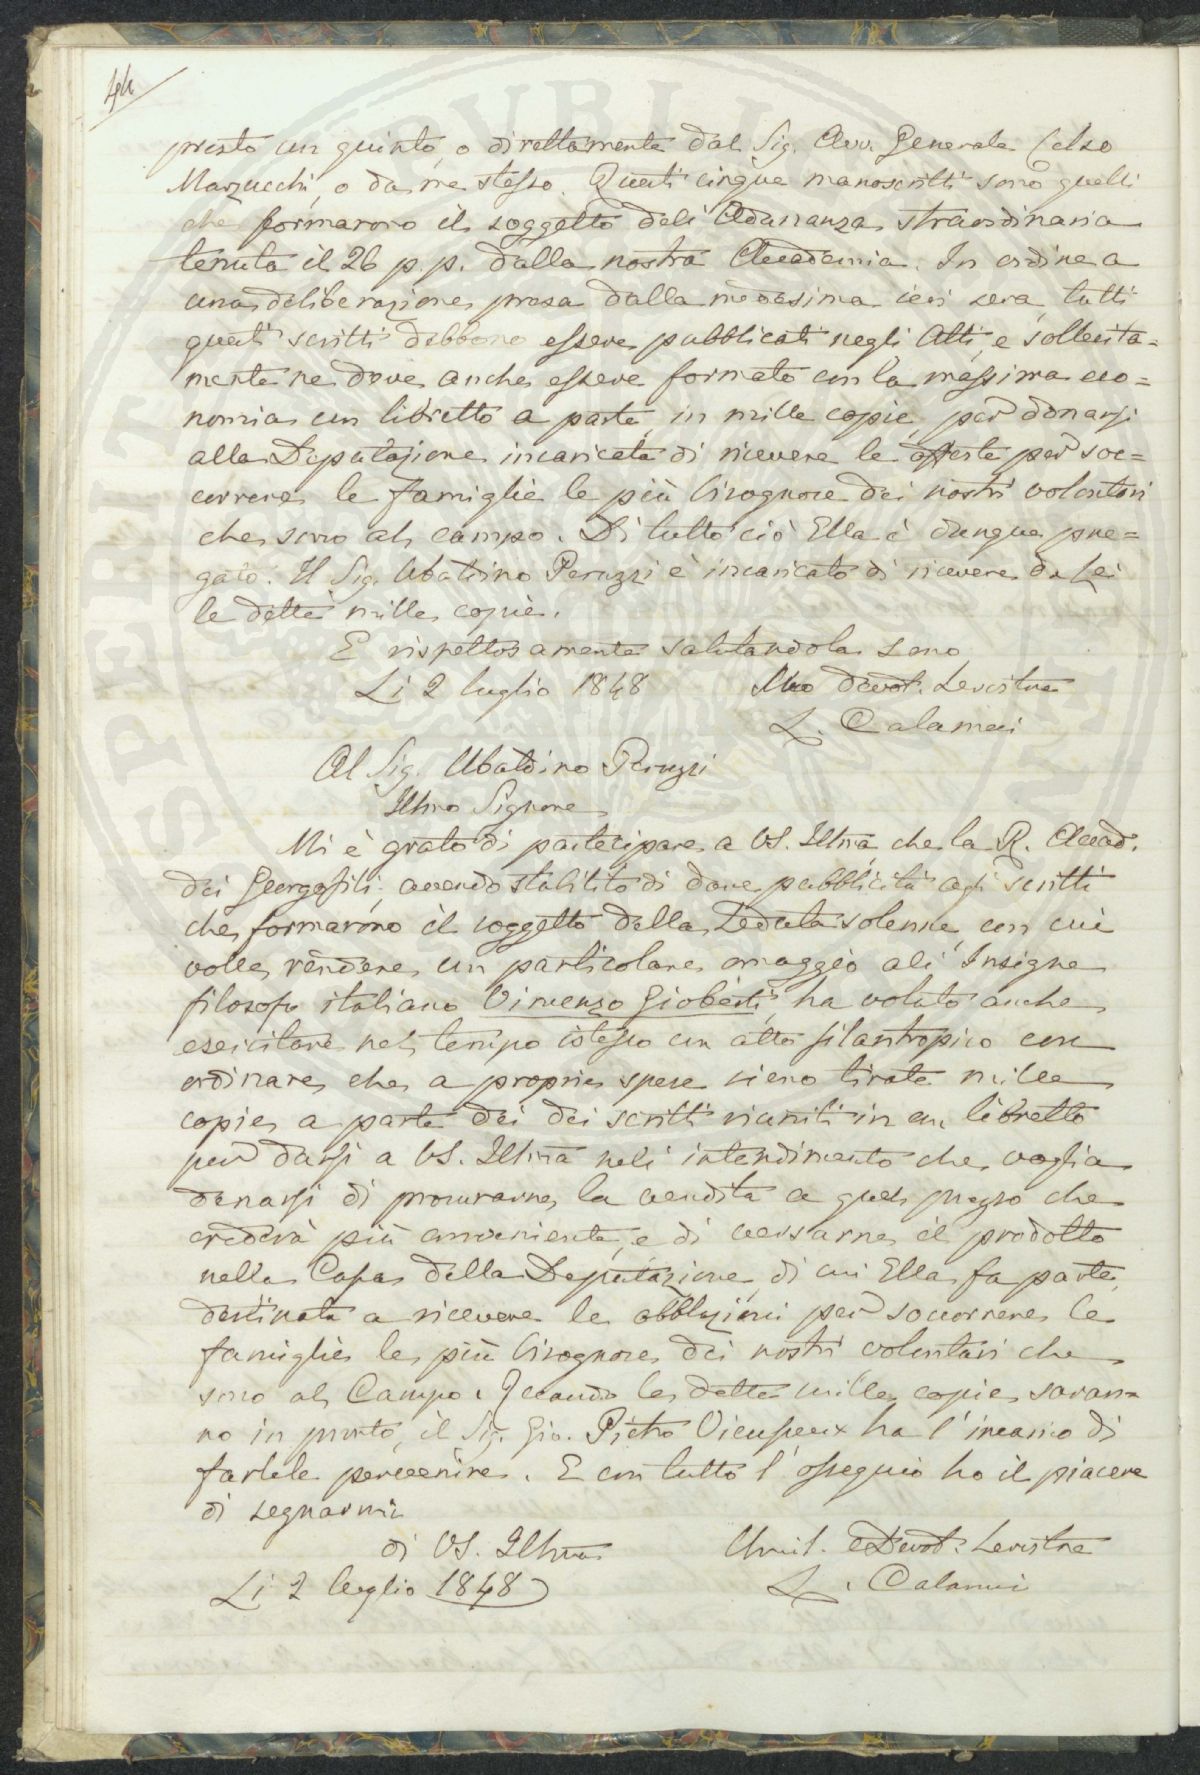 44
presto un quinto, o direttamente dal Sig. Avv. Generale Celso
Marzucchi, o da me stesso. Questi cinque manoscritti sono quelli
che formarono il soggetto dell'Adunanza straordinaria
tenuta il 26 p.p. dalla nostra Accademia. In ordine a
una deliberazione presa dalla medesima ieri sera, tutti
questi scritti debbono essere pubblicati negli Atti, e sollecita=
mente ne deve anche essere formato con la massima eco=
nomia un libretto a parte, in mille copie, per donarsi
alla Deputazione incaricata di ricevere le offerte per soc=
correre le famiglie le più bisognose dei nostri volontari
che sono al campo. Di tutto ciò Ella è dunque pre=
gato. Il Sig. Ubaldino Peruzzi è incaricato di ricevere da Lei
le dette mille copie.
E rispettosamente salutandola sono
Li 2 luglio 1848 Suo devot. Servitore
L. Calamai
Al Sig. Ubaldino Peruzzi
Illmo Signore
Mi è grato di partecipare a VS. Illma che la R. Accad.
dei Georgofili, avendo stabilito di dare pubblicità agli scritti
che formarono il soggetto della Seduta solenne, con cui
volle rendere un particolare omaggio all'Insigne
filosofo italiano Vincenzo Gioberti, ha voluto anche
esercitare nel tempo istesso un atto filantropico con
ordinare che a proprie spese sieno tirate mille
copie a parte dei dei scritti riuniti in un libretto
per darsi a VS. Illma nell'intendimento che voglia
donarsi di procurarne la vendita a quel prezzo che
crederà più conveniente, e di versarne il prodotto
nella Cassa della Deputazione, di cui Ella fa parte,
destinata a ricevere le obblazioni per soccorrere le
famiglie le più bisognose dei nostri volontari che
sono al Campo. Quando le dette mille copie saran=
no in pronto, il Sig. Gio. Pietro Vieusseux ha l'incarico di
farlele pervenire. E con tutto l'ossequio ho il piacere
di segnarmi
di VS. Illma Umil. e Devot. Servitore
Li 2 luglio 1848 L. Calamai
SPERITA
PVBLI